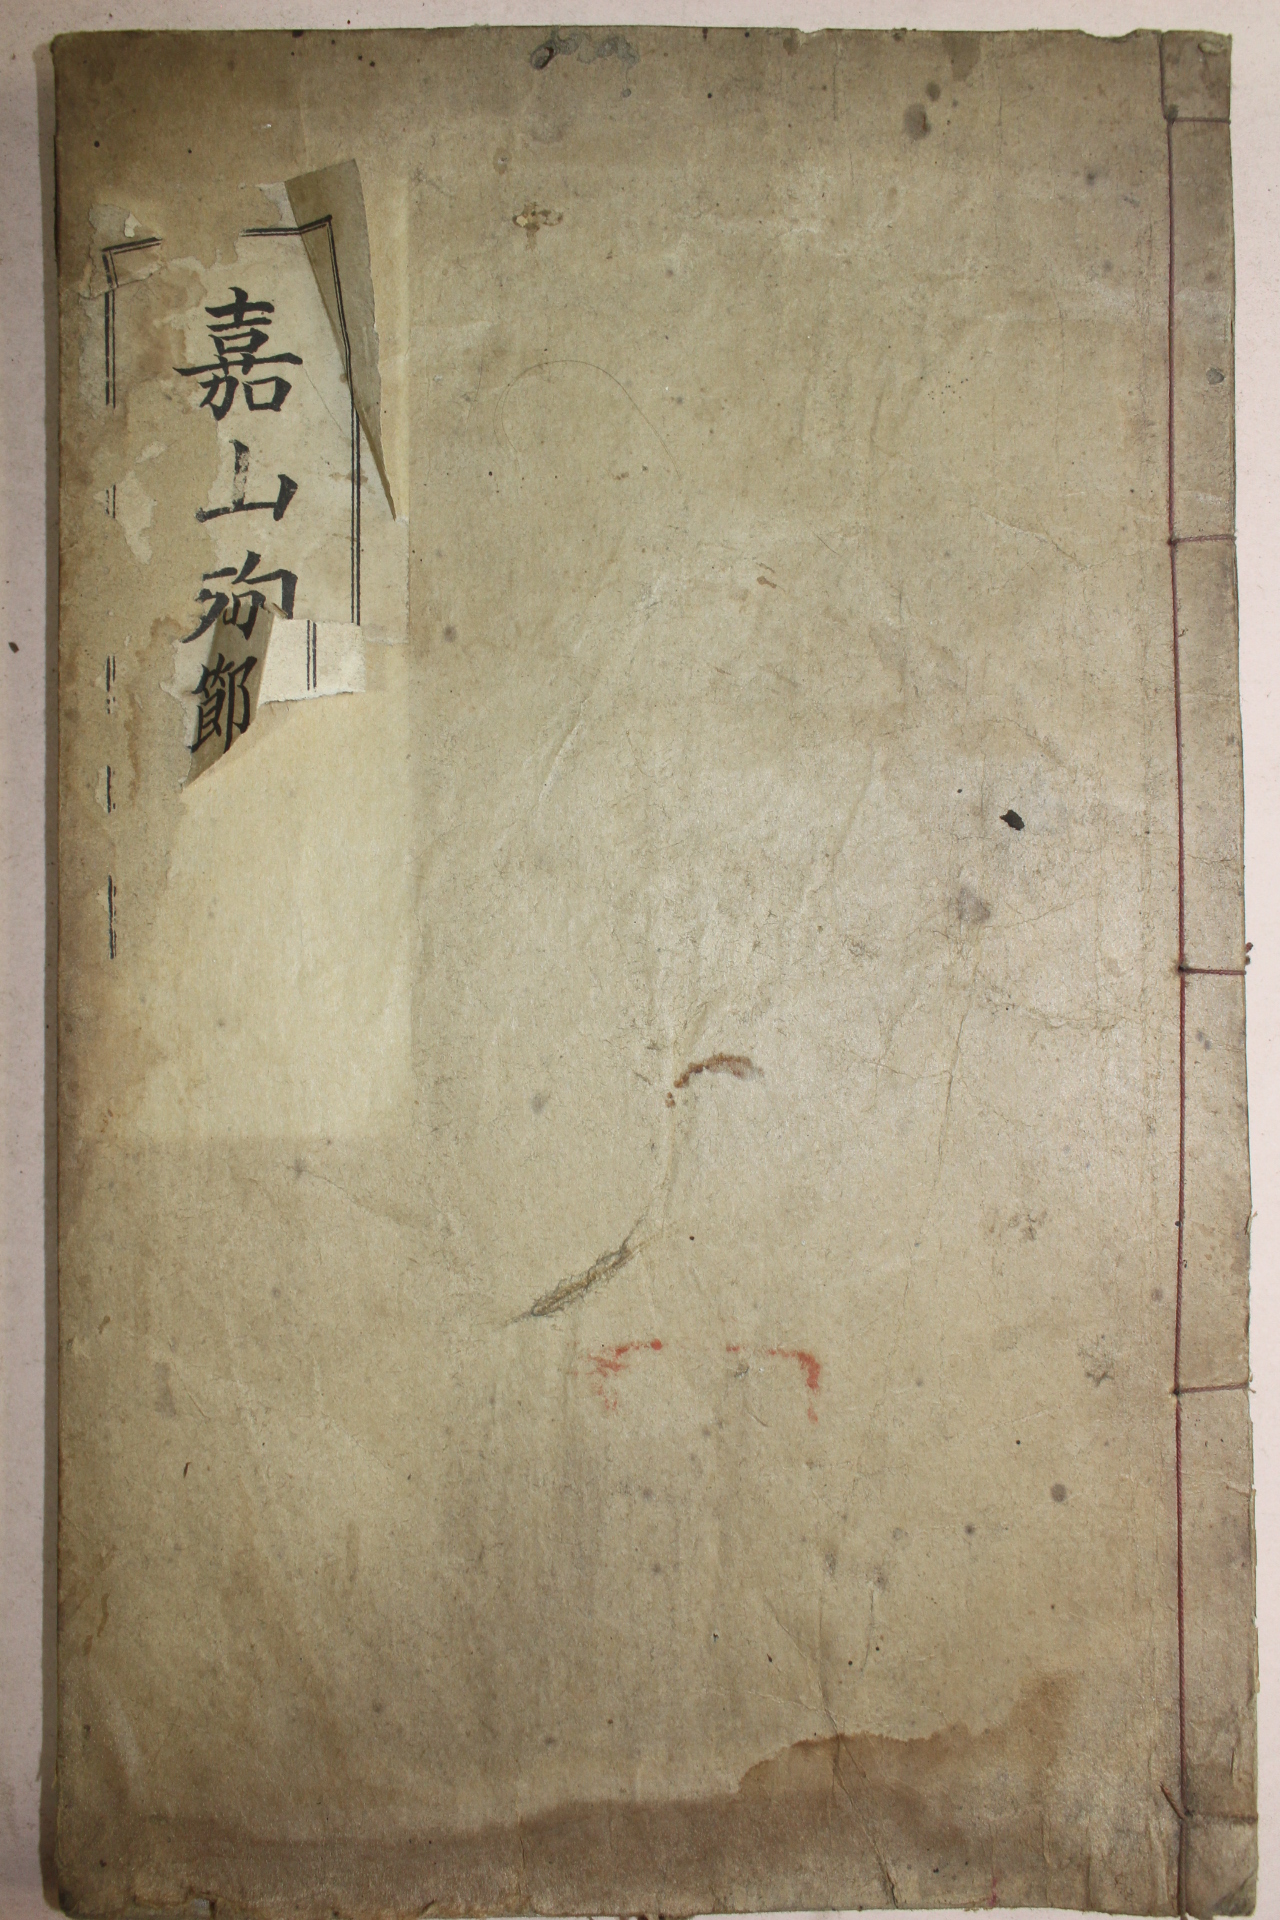 嘉山殉節